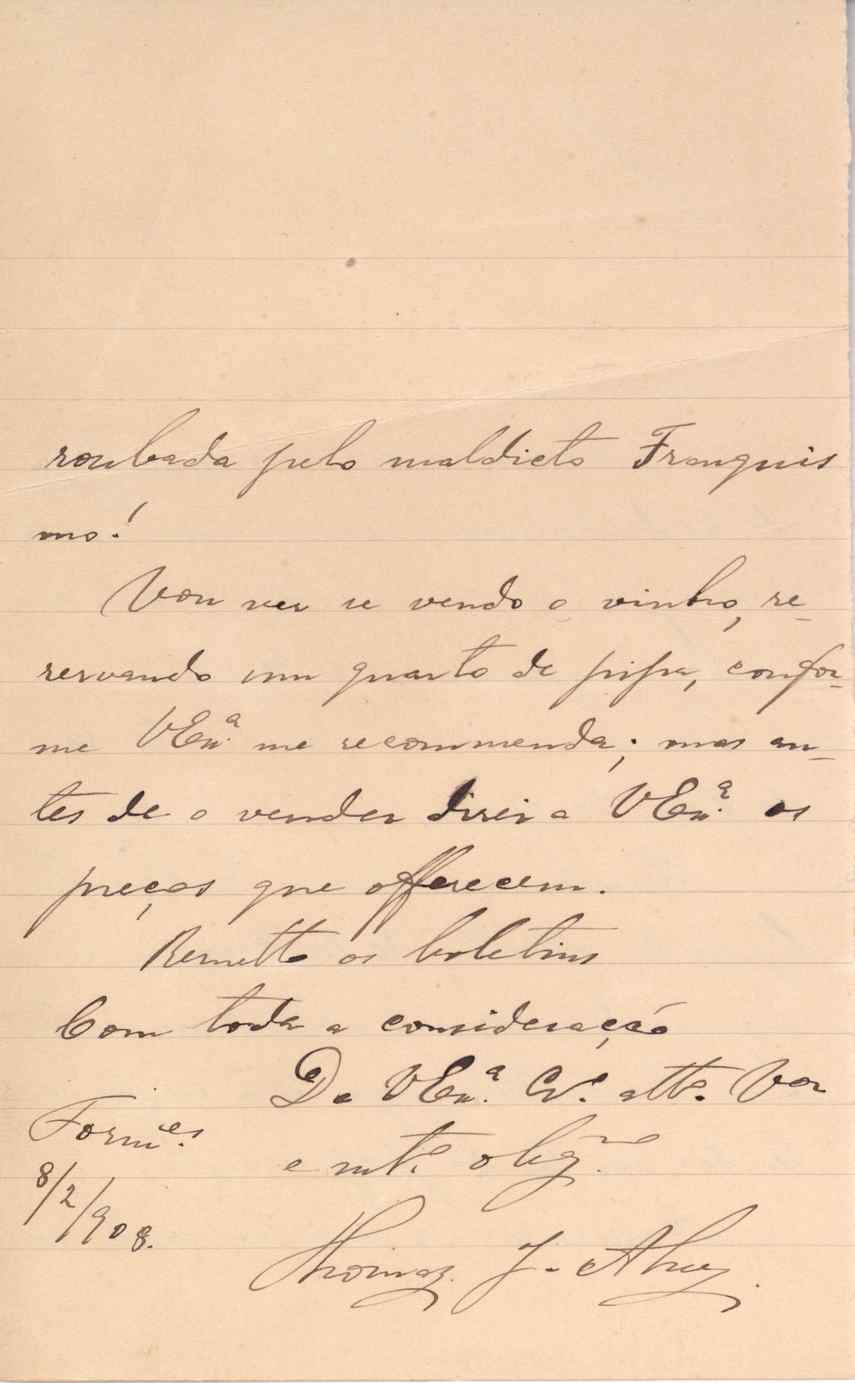 roubada pelo maldicto Franquis
mo!
Vou ver se vendo o vinho, re-
servando um quarto de pipa, confor-
me VEx.ª me recommenda; mas an-
tes de o vender direi a VEx.ª os
preços que offerecem.
Remetto os boletins
Com toda a consideração
De VEx.ª Cr.º att.º Vor
e mt.º obg.º
Form.es
8/2/908.
Thomaz J.